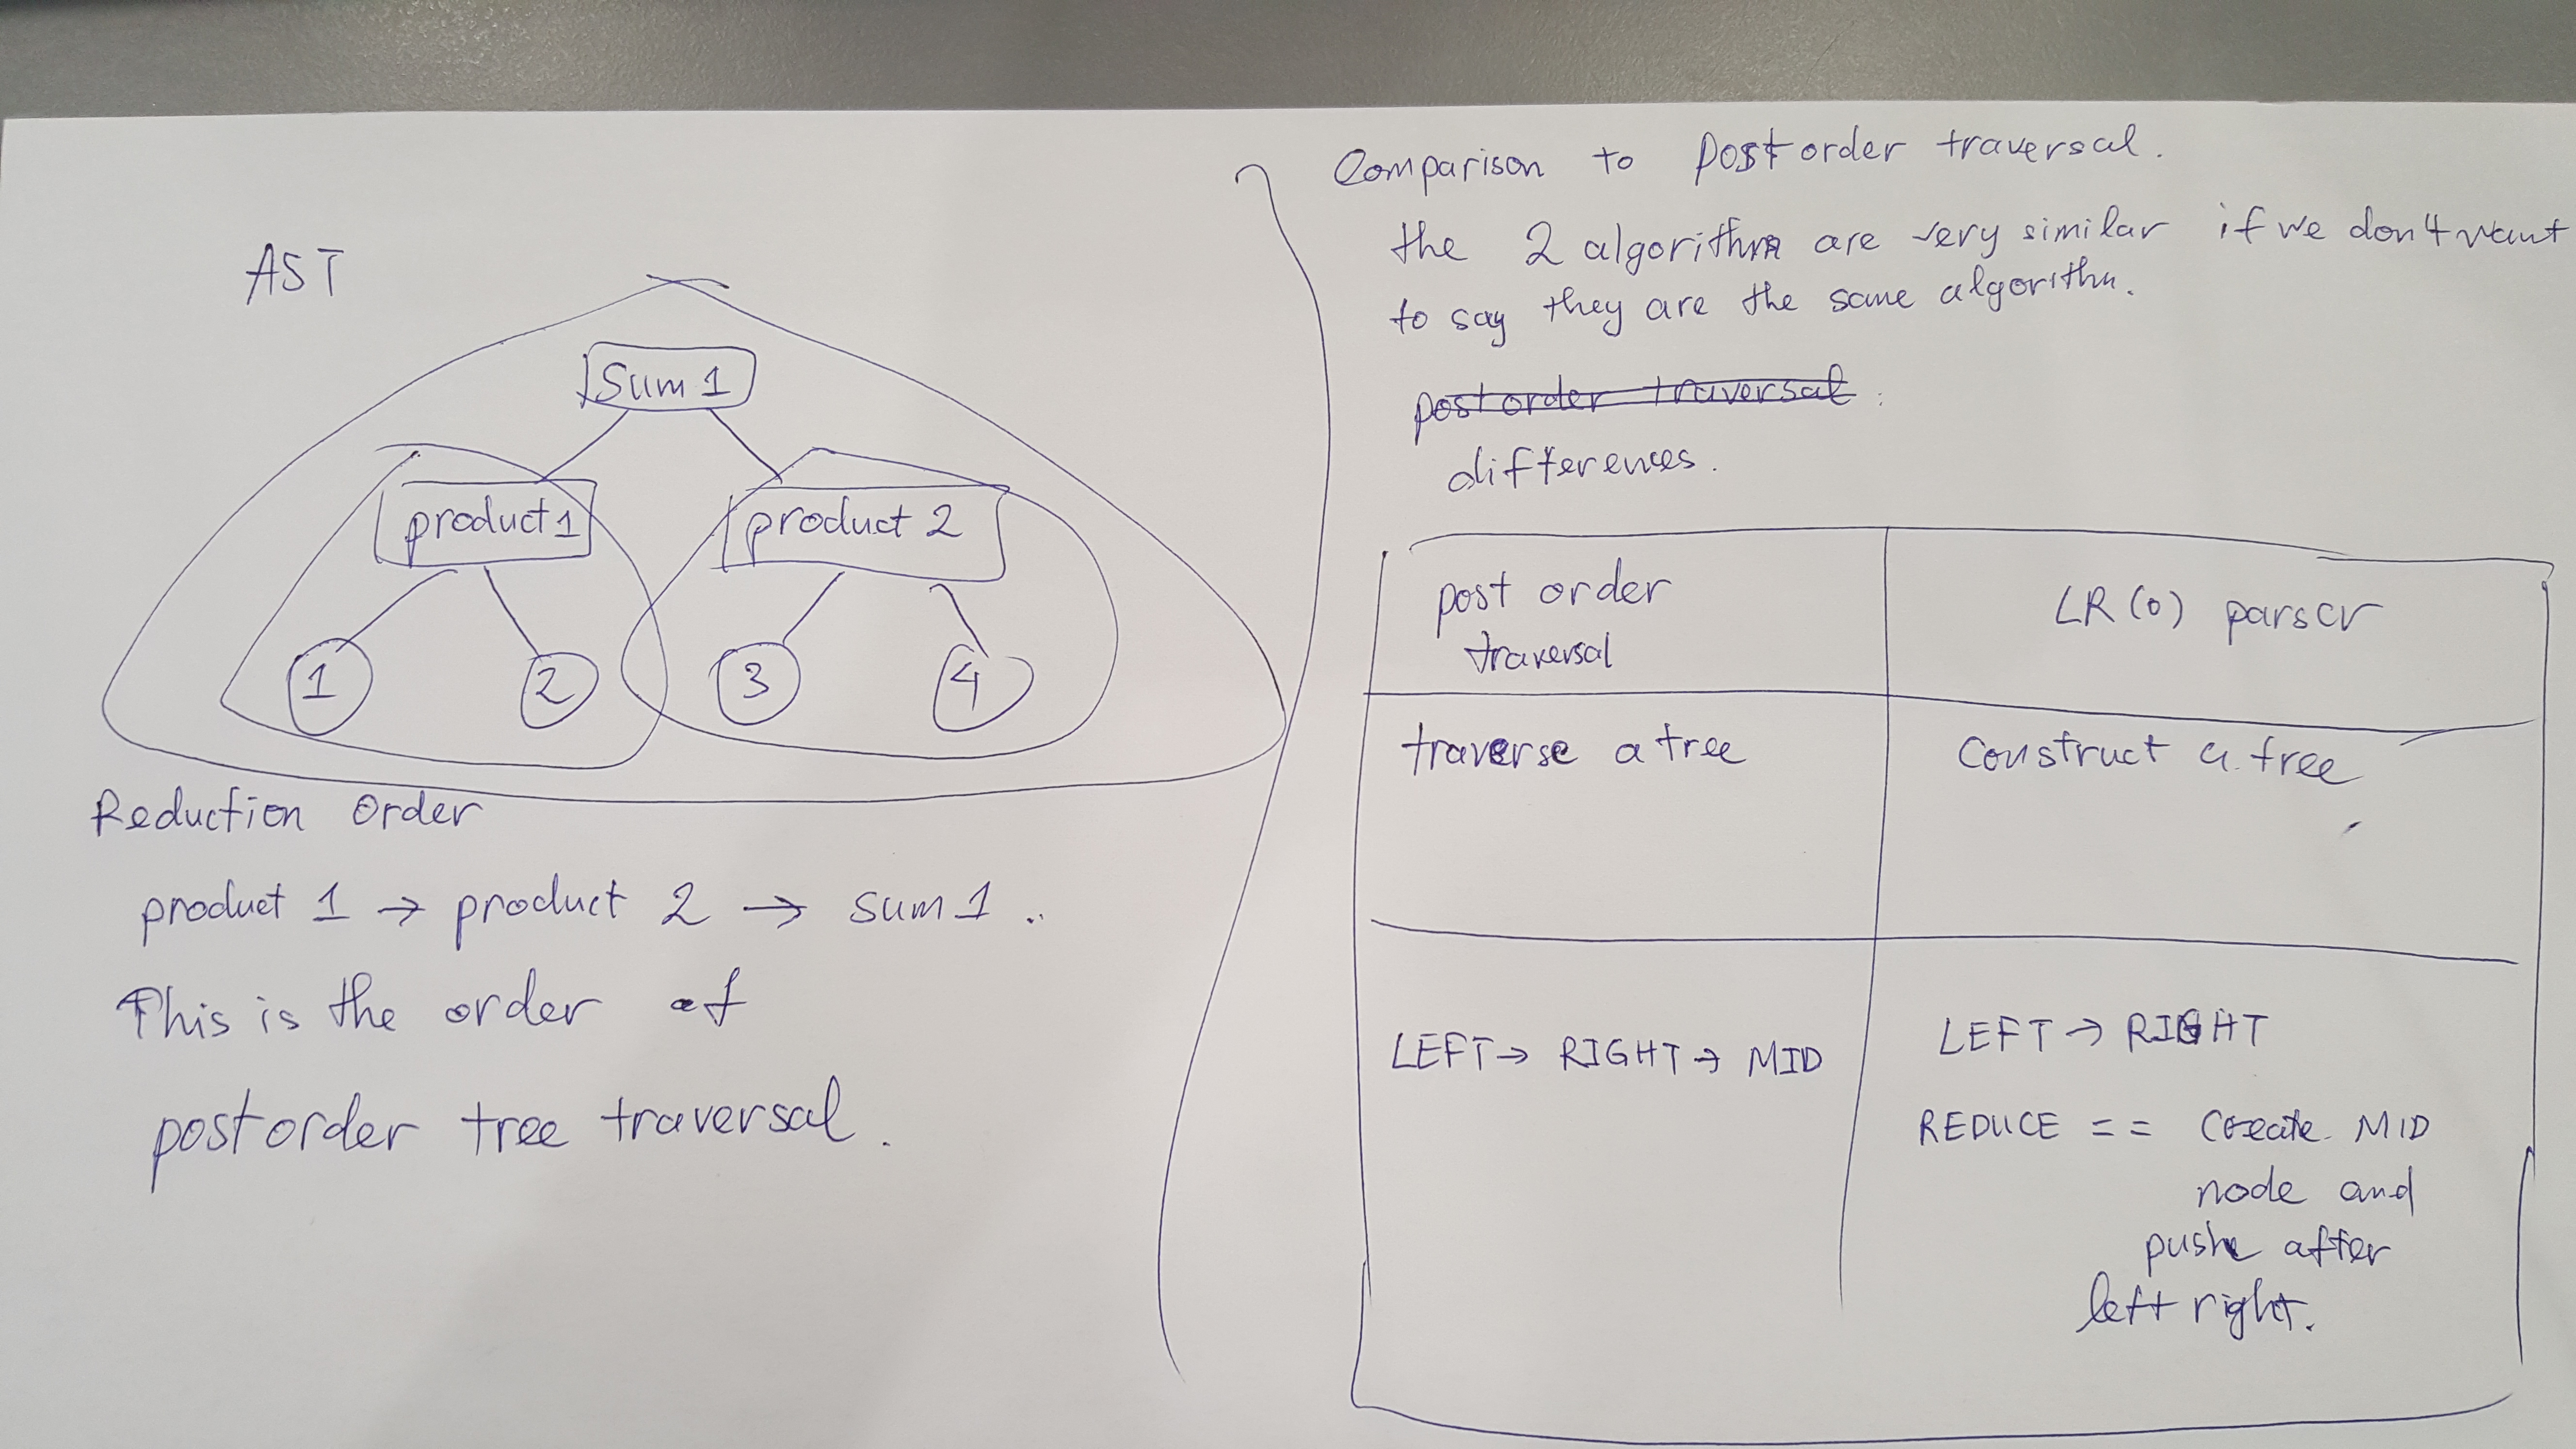 AST
Sum 1
product 1
product 2
1
2
3
4
Reduction Order
product 1 → product 2 → sum 1 ..
This is the order of
postorder tree traversal.
Comparison to post order traversal.
the 2 algorithm are very similar if we don't want
to say they are the same algorithm.
post order traversal :
differences.
post order
traversal
LR(0) parser
traverse a tree
construct a tree
LEFT → RIGHT → MID
LEFT → RIGHT
REDUCE == Create MID
node and
push after
left right.